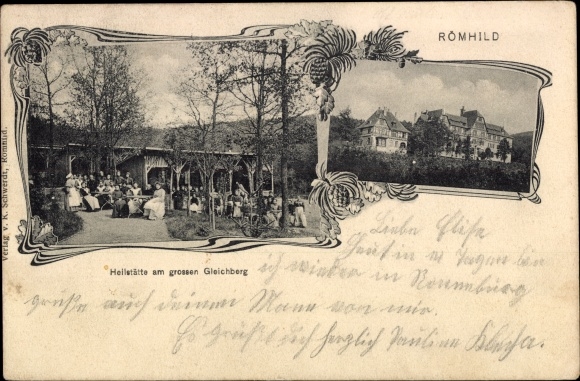 RÖMHILD
Verlag v. K. Schwerdt, Römhild.
Heilstätte am grossen Gleichberg
Liebe Elise
Heut in Tagen bin
ich wieder in Ronneburg
grüße auch deinen Mann von mir.
Es grüßt dich herzlich Pauline